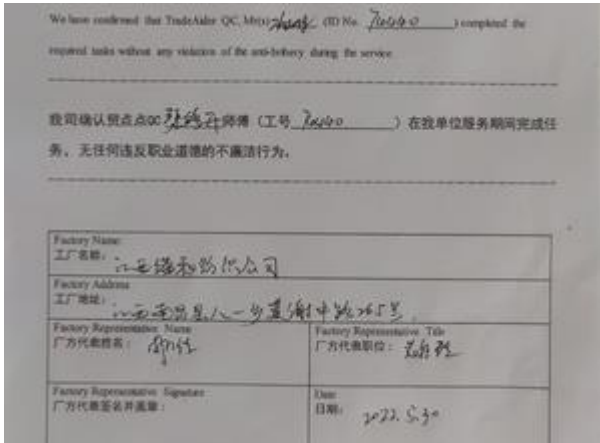 We have confirmed that TradeAider QC, Mr(s) zhang (ID No. 74440 ) completed the
required tasks without any violation of the anti-bribery during the service.
我司确认贸点点QC 师傅（工号 74440 ）在我单位服务期间完成任
务，无任何违反职业道德的不廉洁行为。
Factory Name:
工厂名称： 江西 公司
Factory Address
工厂地址： 江西南昌县八一乡 中路265号
Factory Representative Name
厂方代表姓名：
Factory Representative Title
厂方代表职位：
Factory Representative Signature
厂方代表签名并盖章：
Date
日期： 2022.5.30